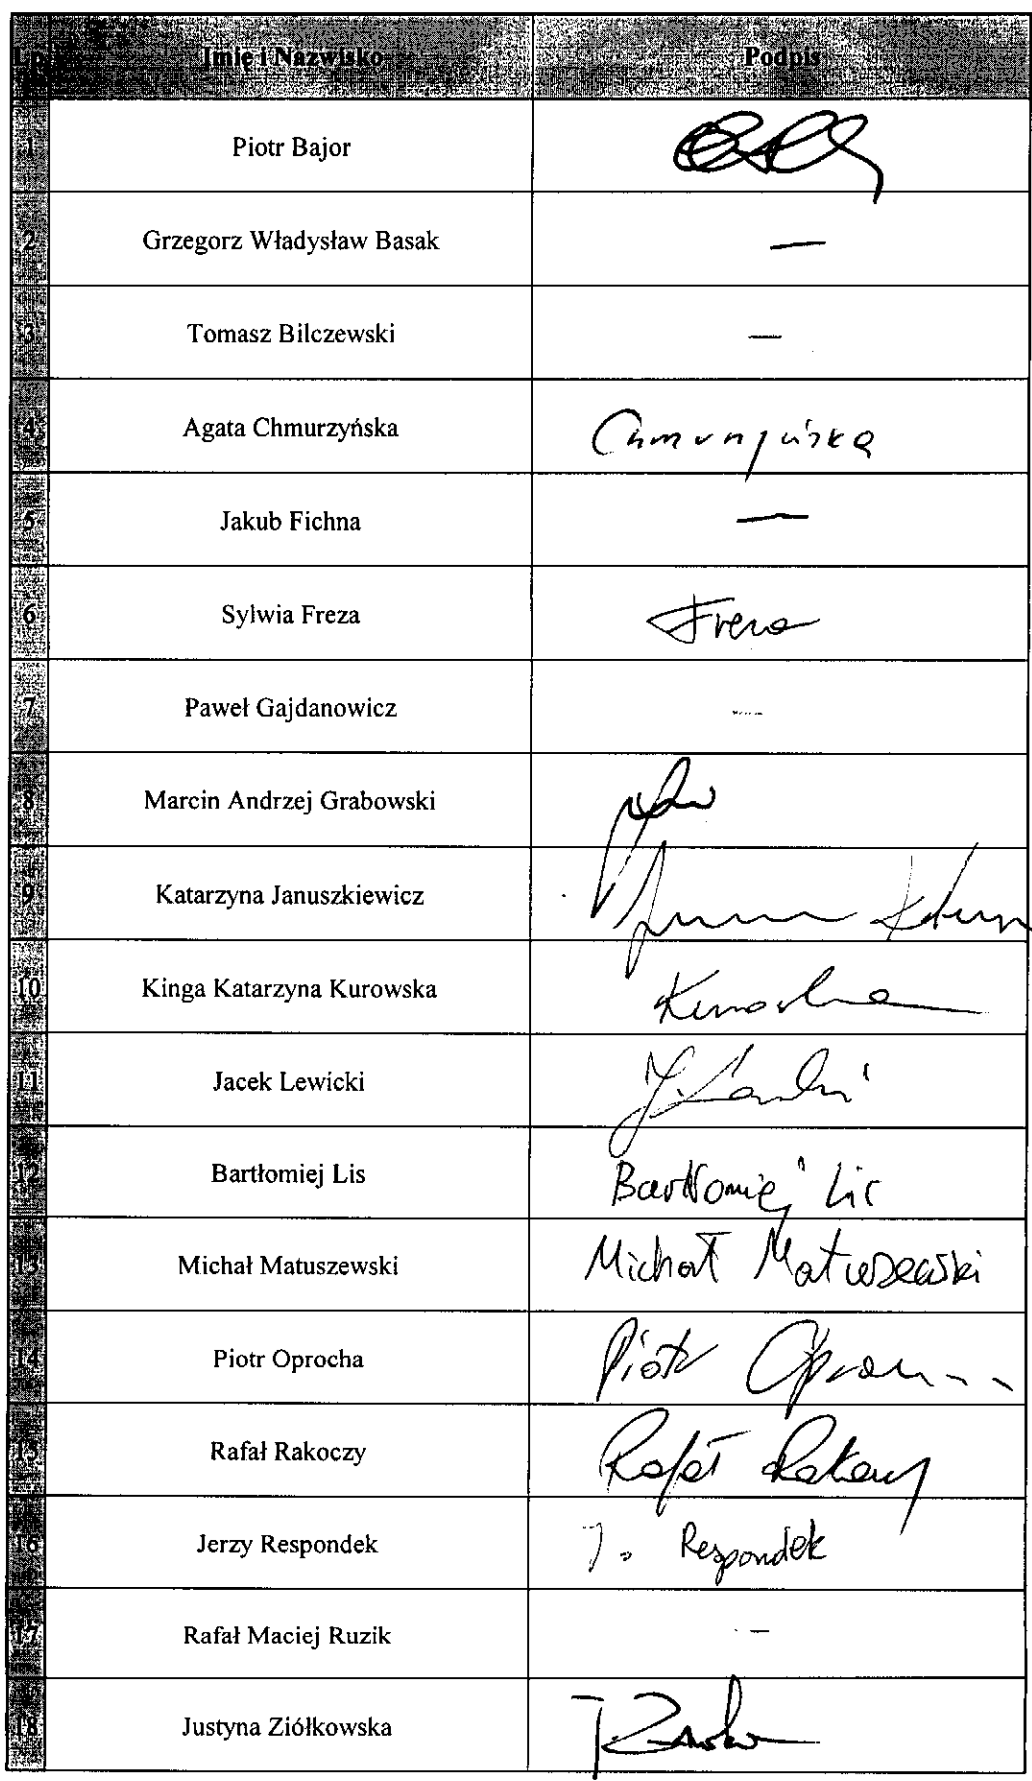 Lp. Imię i Nazwisko Podpis
1 Piotr Bajor
2 Grzegorz Władysław Basak —
3 Tomasz Bilczewski —
4 Agata Chmurzyńska Chmurzyńska
5 Jakub Fichna —
6 Sylwia Freza Freza
7 Paweł Gajdanowicz —
8 Marcin Andrzej Grabowski
9 Katarzyna Januszkiewicz
10 Kinga Katarzyna Kurowska Kurowska
11 Jacek Lewicki
12 Bartłomiej Lis Bartłomiej Lis
13 Michał Matuszewski Michał Matuszewski
14 Piotr Oprocha Piotr
15 Rafał Rakoczy Rafał Rakoczy
16 Jerzy Respondek J. Respondek
17 Rafał Maciej Ruzik —
18 Justyna Ziółkowska